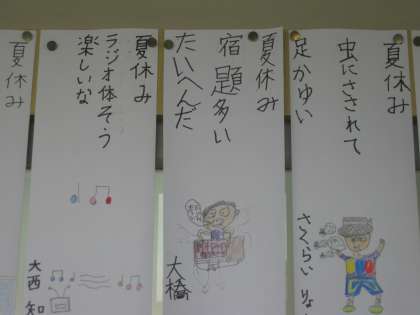 夏休み
虫にさされて
足かゆい
さくらい
夏休み
宿題多い
たいへんだ
大橋
夏休み
ラジオ体そう
楽しいな
大西 知
夏休み